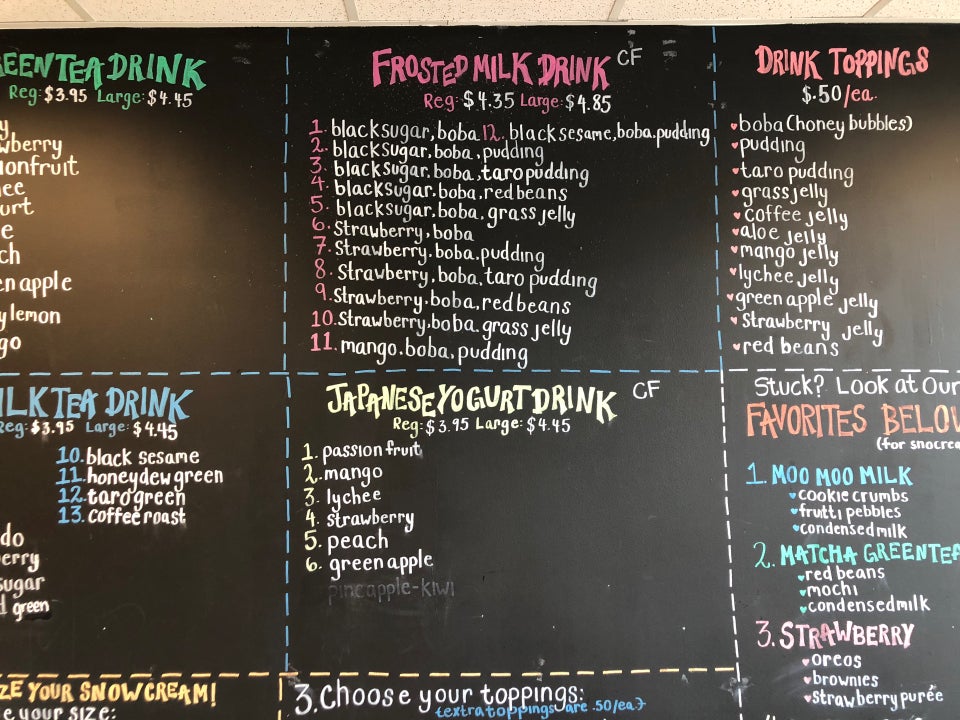 REEN TEA DRINK
Reg: $3.95 Large: $4.45
y
wberry
ionfruit
ee
urt
e
ch
en apple
y lemon
go
ILK TEA DRINK
Reg: $3.95 Large: $4.45
10. black sesame
11. honeydew green
12. taro green
13. coffee roast
do
erry
sugar
d green
ZE YOUR SNOWCREAM!
e your size:
FROSTED MILK DRINK CF
Reg: $4.35 Large: $4.85
1. black sugar, boba 12. black sesame, boba. pudding
2. black sugar. boba, pudding
3. black sugar. boba, taro pudding
4. black sugar. boba, red beans
5. black sugar. boba. grass jelly
6. Strawberry, boba
7. Strawberry. boba. pudding
8. Strawberry, boba, taro pudding
9. strawberry, boba, red beans
10. strawberry, boba. grass jelly
11. mango. boba, pudding
JAPANESE YOGURT DRINK CF
Reg: $3.95 Large: $4.45
1. passion fruit
2. mango
3. lychee
4. strawberry
5. peach
6. green apple
pineapple-kiwi
3. Choose your toppings:
{extra toppings are .50/ea}
DRINK TOPPINGS
$.50/ea.
boba (honey bubbles)
pudding
taro pudding
grass jelly
coffee jelly
aloe jelly
mango jelly
lychee jelly
green apple jelly
Strawberry jelly
red beans
Stuck? Look at Our
FAVORITES BELOW
(for snocrea
1. MOO MOO MILK
cookie crumbs
frutti pebbles
condensed milk
2. MATCHA GREEN TEA
red beans
mochi
condensed milk
3. STRAWBERRY
oreos
brownies
strawberry purée